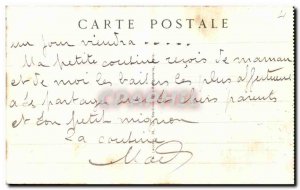 CARTE POSTALE
4
un jour viendra .....
Ma petite cousine reçois de maman
et de moi les baisers les plus affectueux
à partager avec chers parents
et ton petit mignon
Ta cousine